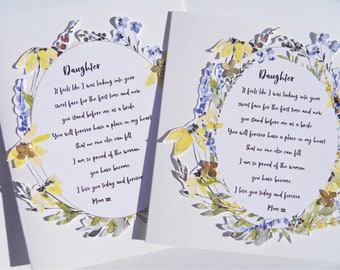 Daughter
It feels like I was looking into your
sweet face for the first time and now
you stand before me as a bride.
You will forever have a place in my heart
that no one else can fill.
I am so proud of the woman
you have become.
I love you today and forever.
Mom
Daughter
It feels like I was looking into your
sweet face for the first time and now
you stand before me as a bride.
You will forever have a place in my heart
that no one else can fill.
I am so proud of the woman
you have become.
I love you today and forever.
Mom